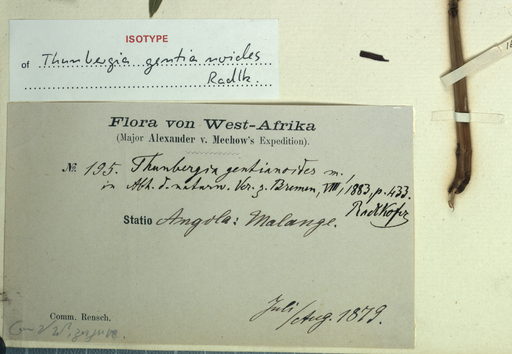 ISOTYPE
of Thunbergia gentianoides
Radlk.
Flora von West-Afrika
(Major Alexander v. Mechow's Expedition).
№. 195. Thunbergia gentianoides m.,
in Abh. d. naturw. Ver. z. Bremen, VIII, 1883, p. 433.
Radlkofer
Statio Angola: Malange.
Juli/Aug. 1879.
Comm. Rensch.